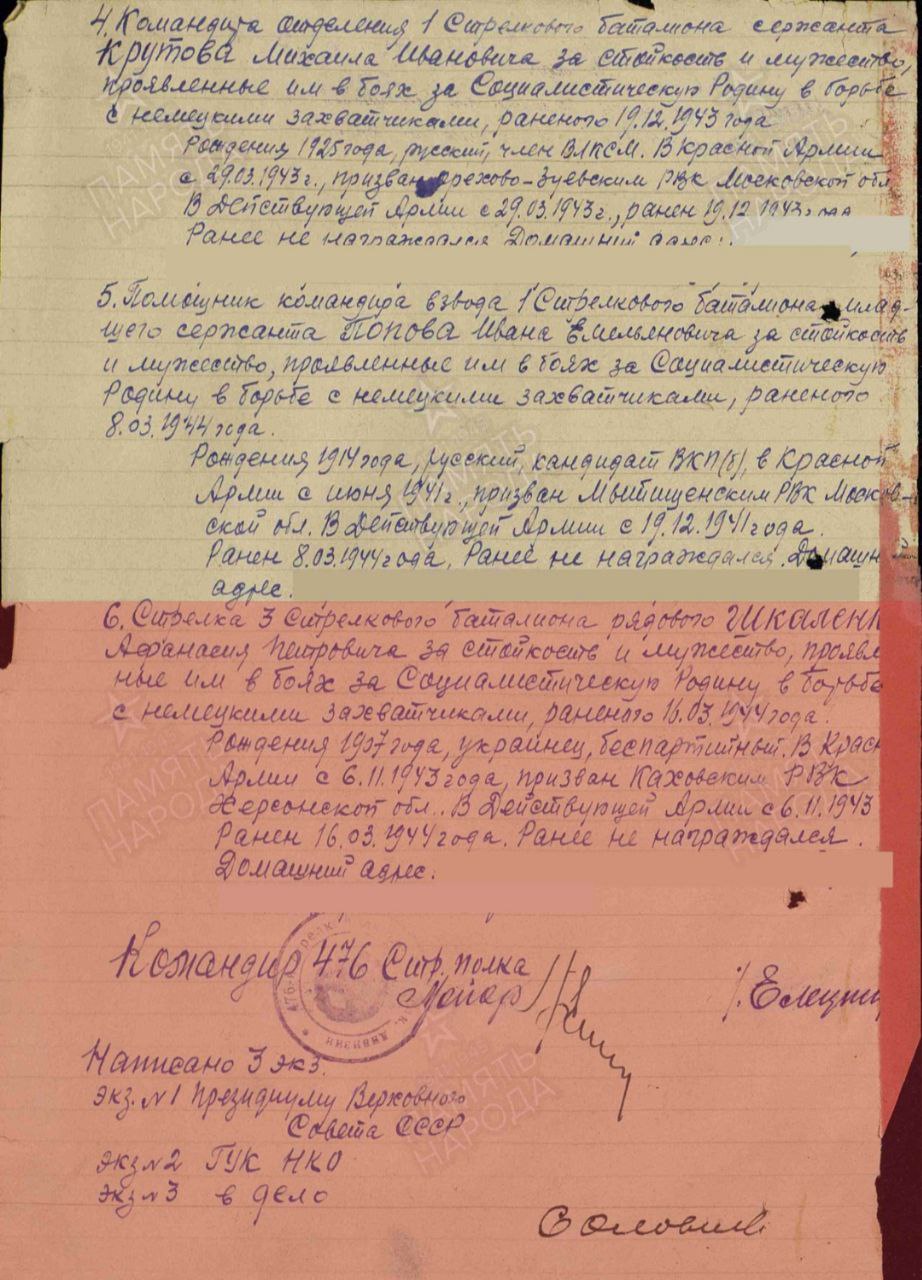 4. Командира отделения 1 Стрелкового баталиона сержанта
Крутова Михаила Ивановича за стойкость и мужество,
проявленные им в боях за Социалистическую Родину в борьбе
с немецкими захватчиками, раненого 19.12.1943 года
Рождения 1925 года, русский, член ВЛКСМ. В Красной Армии
с 29.03.1943 г., призван Орехово-Зуевским РВК Московской обл
В Действующей Армии с 29.03.1943 г., ранен 19.12.1943 года
Ранее не награждался Домашний адрес:
5. Помощник командира взвода 1 Стрелкового баталиона млад-
щего сержанта Попова Ивана Емельяновича за стойкость
и мужество, проявленные им в боях за Социалистическую
Родину в борьбе с немецкими захватчиками, раненого
8.03.1944 года.
Рождения 1914 года, русский, кандидат ВКП(б), в Красной
Армии с июня 1941 г., призван Мытищенским РВК Москов-
ской обл. В Действующей Армии с 19.12.1941 года.
Ранен 8.03.1944 года. Ранее не награждался. Домашн
адрес.
6. Стрелка 3 Стрелкового баталиона рядового Шкален
Афанасия Петровича за стойкость и мужество, проявл
ные им в боях за Социалистическую Родину в борьбе
с немецкими захватчиками, раненого 16.03.1944 года.
Рождения 1907 года, украинец, беспартийный. В Красн
Армии с 6.11.1943 года, призван Каховским РВК
Херсонской обл.. В Действующей Армии с 6.11.1943
Ранен 16.03.1944 года. Ранее не награждался.
Домашний адрес.
Командир 476 Стр. полка
Майор
Написано 3 экз.
экз. №1 Президиуму Верховного
Совета СССР
экз №2 ГУК НКО
экз №3 в дело
ПАМЯТЬ
НАРОДА